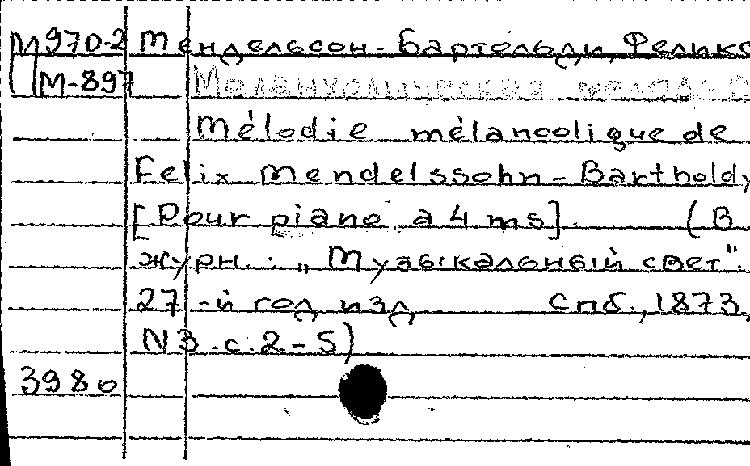 М970-2 Мендельсон-Бартольди, Феликс
М-897 Меланхолическая мелодия
Mélodie mélancolique de
Felix Mendelssohn-Bartholdy
[Pour piano à 4 ms] (В
журн.: „Музыкальный свет".
27-й год изд. Спб., 1873,
N3. с. 2-5)
3980